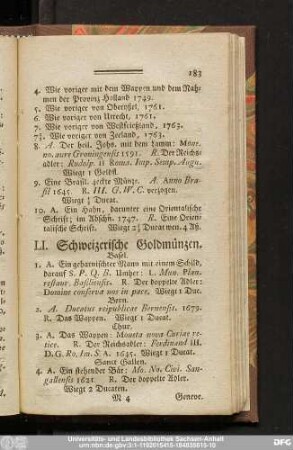 183
4. Wie voriger mit dem Wappen und dem Nah-
men der Provinz Holland 1749.
5. Wie voriger von Oberyssel, 1761.
6. Wie voriger von Utrecht, 1761.
7. Wie voriger von Westfriesland, 1763.
7½. Wie voriger von Zeeland, 1763.
8. A. Der heil. Joh. mit dem Lamm: Mone.
no. aure Groningensis 1591. R. Der Reichs-
adler: Rudolp. ii Roma. Imp. Semp. Augu.
Wiegt 1 Goldfl.
9. Eine Brasil. 4eckte Münze. A. Anno Bra-
sil 1645. R. III. G. W. C. verzogen.
Wiegt Ducat.
10. A. Ein Hahn, darunter eine Orientalische
Schrift; im Abschn. 1747. R. Eine Orien-
talische Schrift. Wiegt Ducat wen. 4 Aß.
LI. Schweizerische Goldmünzen.
Basel.
1. A. Ein geharnischter Mann mit einem Schild,
darauf S. P. Q. B. Umher: L. Mun. Plan.
restaur. Basiliensis. R. Der doppelte Adler:
Domine conserva nos in pace. Wiegt 1 Duc.
Bern.
2. A. Ducatus reipublicae Bernensis. 1679.
R. Das Wappen. Wiegt 1 Ducat.
Chur.
3. A. Das Wappen: Moneta nova Curiae re-
tice. R. Der Reichsadler: Ferdinand III.
D. G. Ro. Im. S A. 1635. Wiegt 1 Ducat.
Sanct Gallen.
4. A. Ein stehender Bär: Mo. No. Civi. San-
gallensis 1621 R. Der doppelte Adler.
Wiegt 2 Ducaten.
M 4 Geneve.
Universitäts- und Landesbibliothek Sachsen-Anhalt
urn:nbn:de:gbv:3:1-1192015415-184635813-10